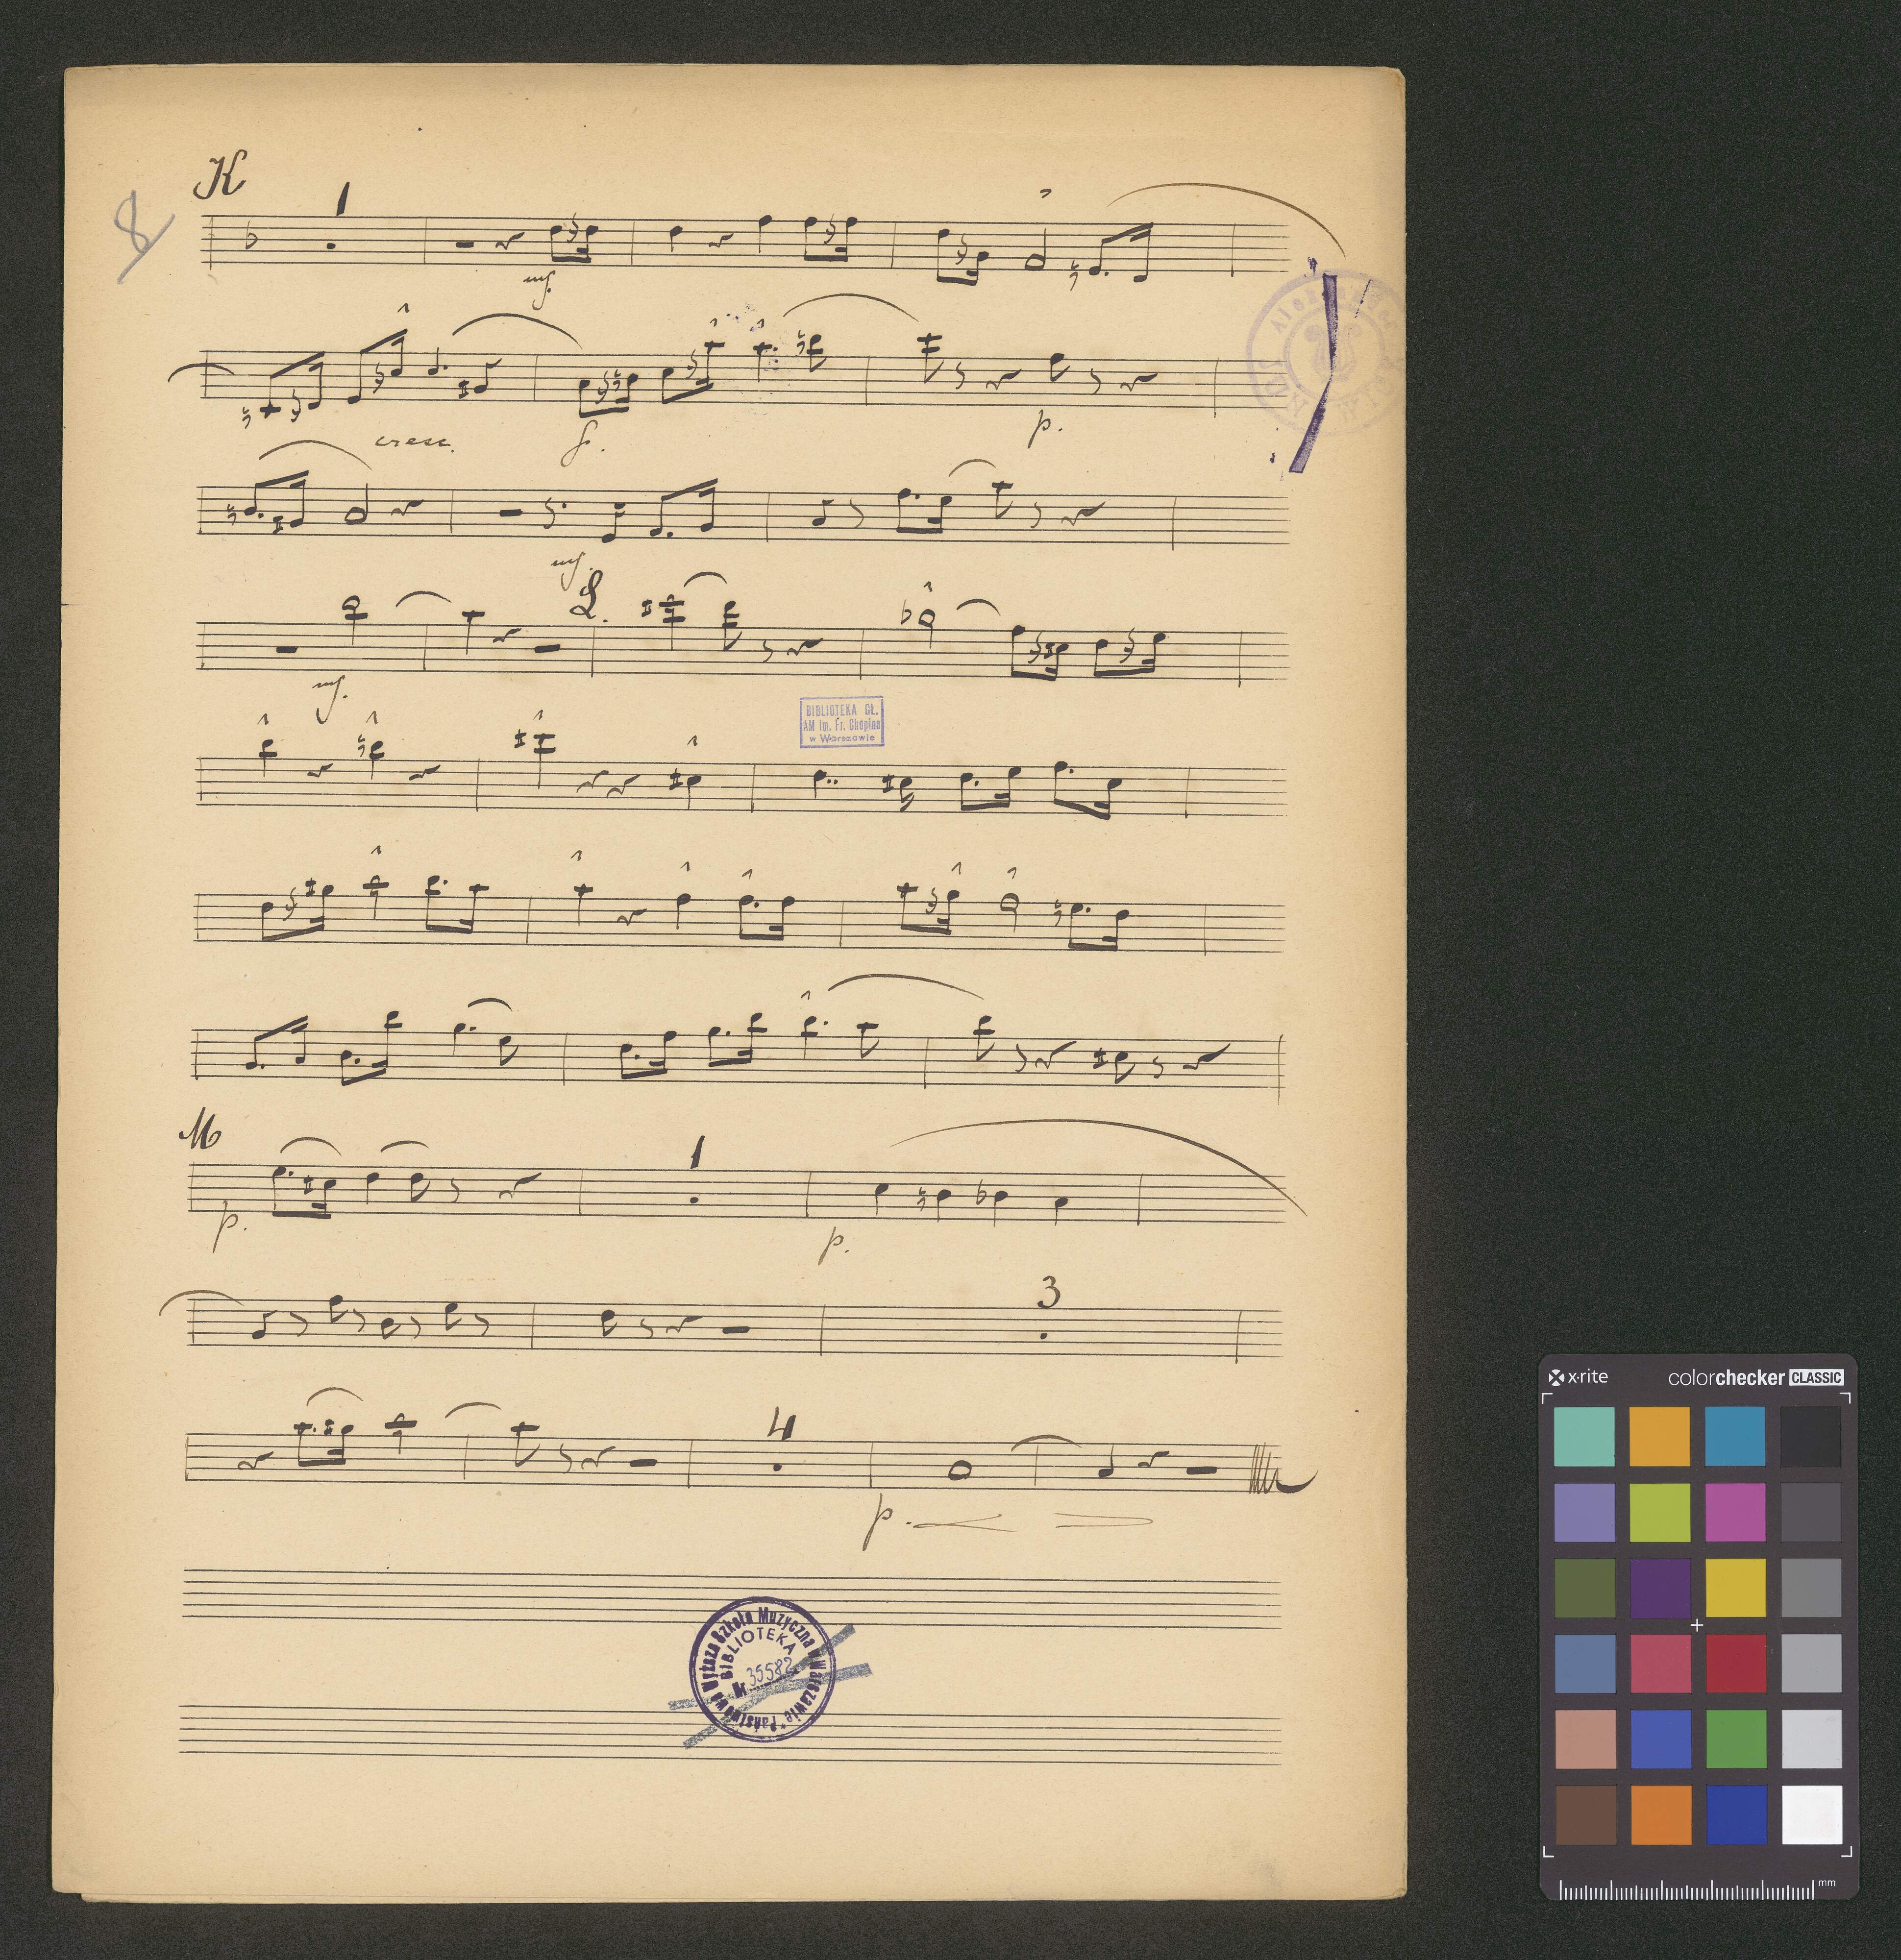 K
8
1
mf.
cresc.
f.
p.
mf.
L.
mf.
BIBLIOTEKA GŁ.
AM im. Fr. Chopina
w Warszawie
M
1
p.
p.
3
4
p.
Państwowa Wyższa Szkoła Muzyczna w Warszawie
BIBLIOTEKA
Nr 35582
x-rite
colorchecker CLASSIC
mm